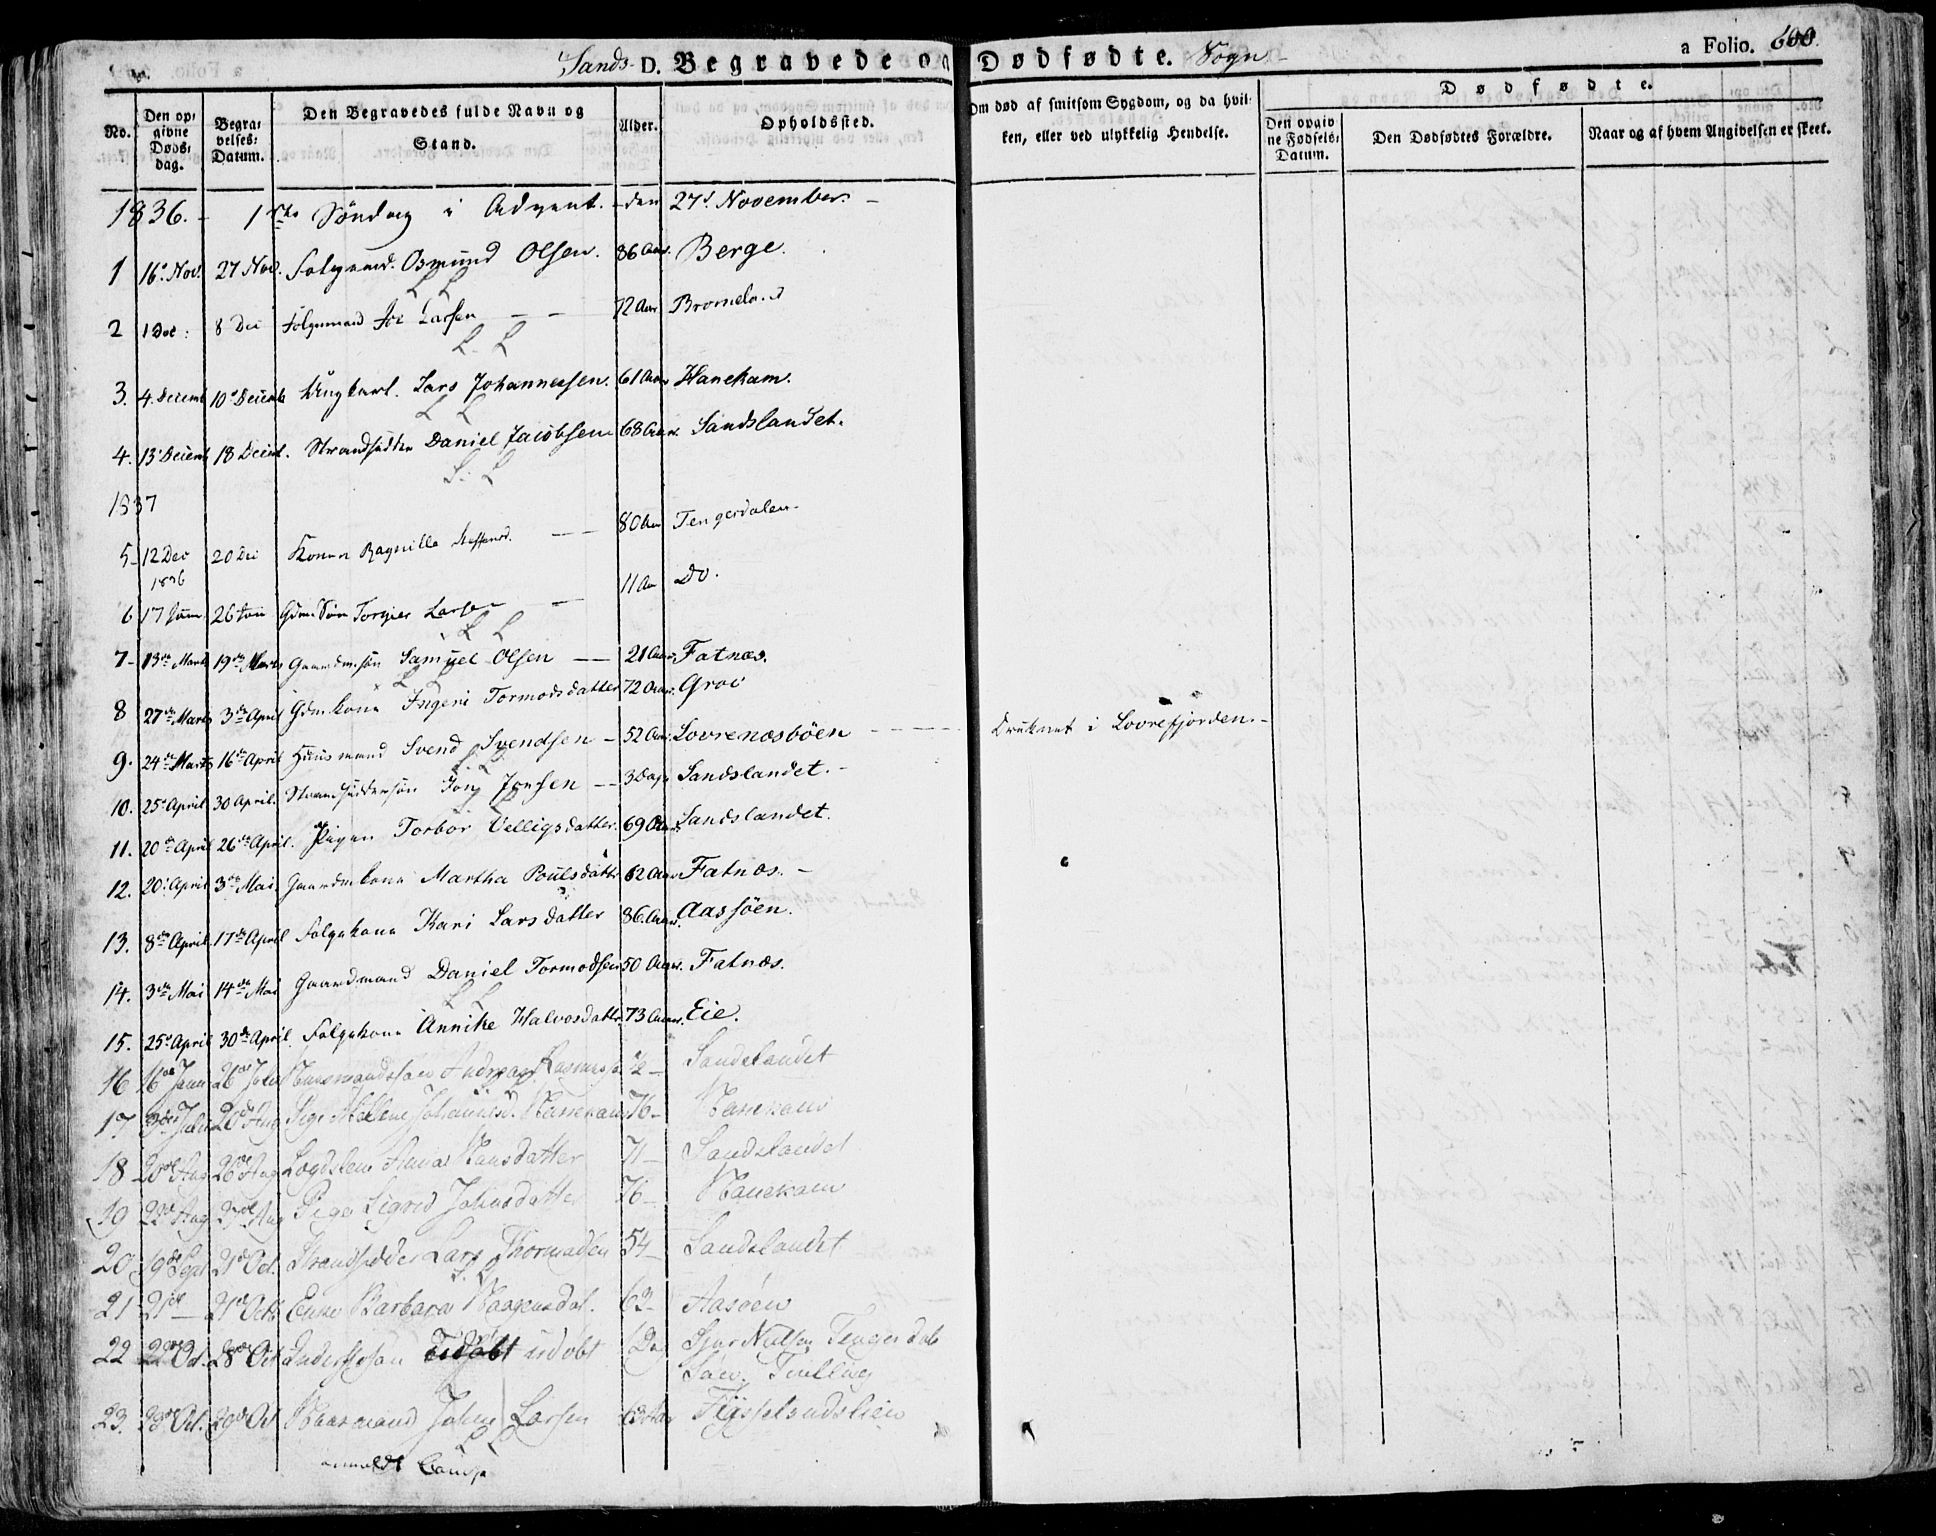 Sands D. Begravede og Dødfødte. Sogn
a Folio. 600.
No.
Den opgivne Døds-dag.
Begravelses-Datum.
Den Begravedes fulde Navn og Stand.
Alder.
Opholdssted.
Om død af smitsom Sygdom, og da hvilken, eller ved ulykkelig Hendelse.
Dødfødte.
Den opgivne Fødsels-Datum.
Den Dødfødtes Forældre.
Naar og af hvem Angivelsen er skeet.
1836. - 1ste Søndag i Advent. - den 27d November. -
1 16d Nov. 27 Nov. Folgemd. Osmund Olsen. 86 Aar. Berge.
L L
2 1 Dec: 8 Dec Folgemand Joe Larsen - - 72 Aar Bromeland
L. L
3. 4. Decemb 10d Decemb Ungkarl. Lars Johannessen. 61 Aar Hanekam.
L L
4. 13d Decemb 18 Decemb. Strandsidder Daniel Jacobsen 68 Aar. Sandslandet.
L. L
1837
5- 12 Dec 1836 20 Dec Konen Ragnille Steffensd. - - 80 Aar Tengesdalen-
6 17 Janu 26 Janu Gdm. Søn Torgier Larsen - 11 Aar Do.
L L
7- 13de Marts 19de Marts Gaardm. søn Samuel Olsen - - 21 Aar. Fatnæs.
L L
8 27de Marts 3de April Gdm. kone Ingeri Tormodsdatter 72 Aar. Grov
9. 24de Marts 16de April Huusmand Svend Svendsen - 52 Aar. Lovrenæsbøen - - - - Druknet i Lovrefjorden. -
L L
10. 25d April 30 April. Strandsiddersøn Jony Jonsen - - 3 Dage Sandslandet. -
L
11. 20de April 26de April. Pigen Torbor Velligsdatter 69 Aar. Sandslandet.
12. 20d April 3de Mai. Gaardm. kone Martha Poulsdatter 62 Aar. Fatnæs. -
13. 8de April. 17de April Folgekone Kari Larsdatter 86. Aar. Aassøen.
14. 3de Mai 14de Mai Gaardmand Daniel Tormodsen 50 Aar. Fatnæs.
L L
15. 25d April 30de April. Folgekone Annike Halvorsdatter. 73 Aar. Eie.
16 16de Juni 26de Juni Huusmandssøn Andreas Rasmussen ½ - Sandslandet
L L
17 3de Juli 20de Aug Pige Malene Johannesd. Hanekam 76 - Hanekam
18 20de Aug 26de Aug Lægdslem Anna Hansdatter 71 - Sandslandet
19 22de Aug 27de Aug Pige Sigrid Johnsdatter 76 - Hanekam
20 19de Sept 21d Oct. Strandsidder Lars Thormodsen 54 - Sandslandet
L. L
21 21de - 21d Octb Enke Barbara Haagensdat. 63 - Aasøen
22 22de Oct. 28de Oct udøbt Dag Tengesdal
Tvilling
23. 23de Oct. 29de Oct Huusmand John Larsen 63 Aar
L L
anmeldt